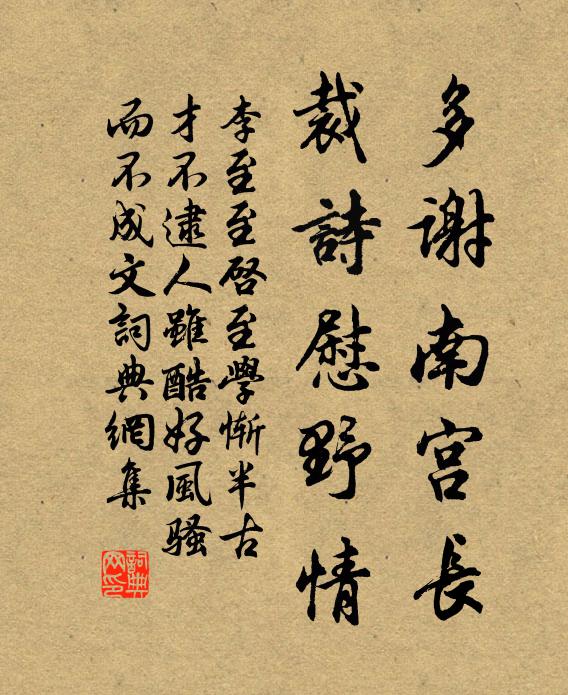 多谢南宫長
裁詩慰野情
李至至啓至學慚半古
才不逮人雖酷好風騷
而不成文詞典網集
詞典網印